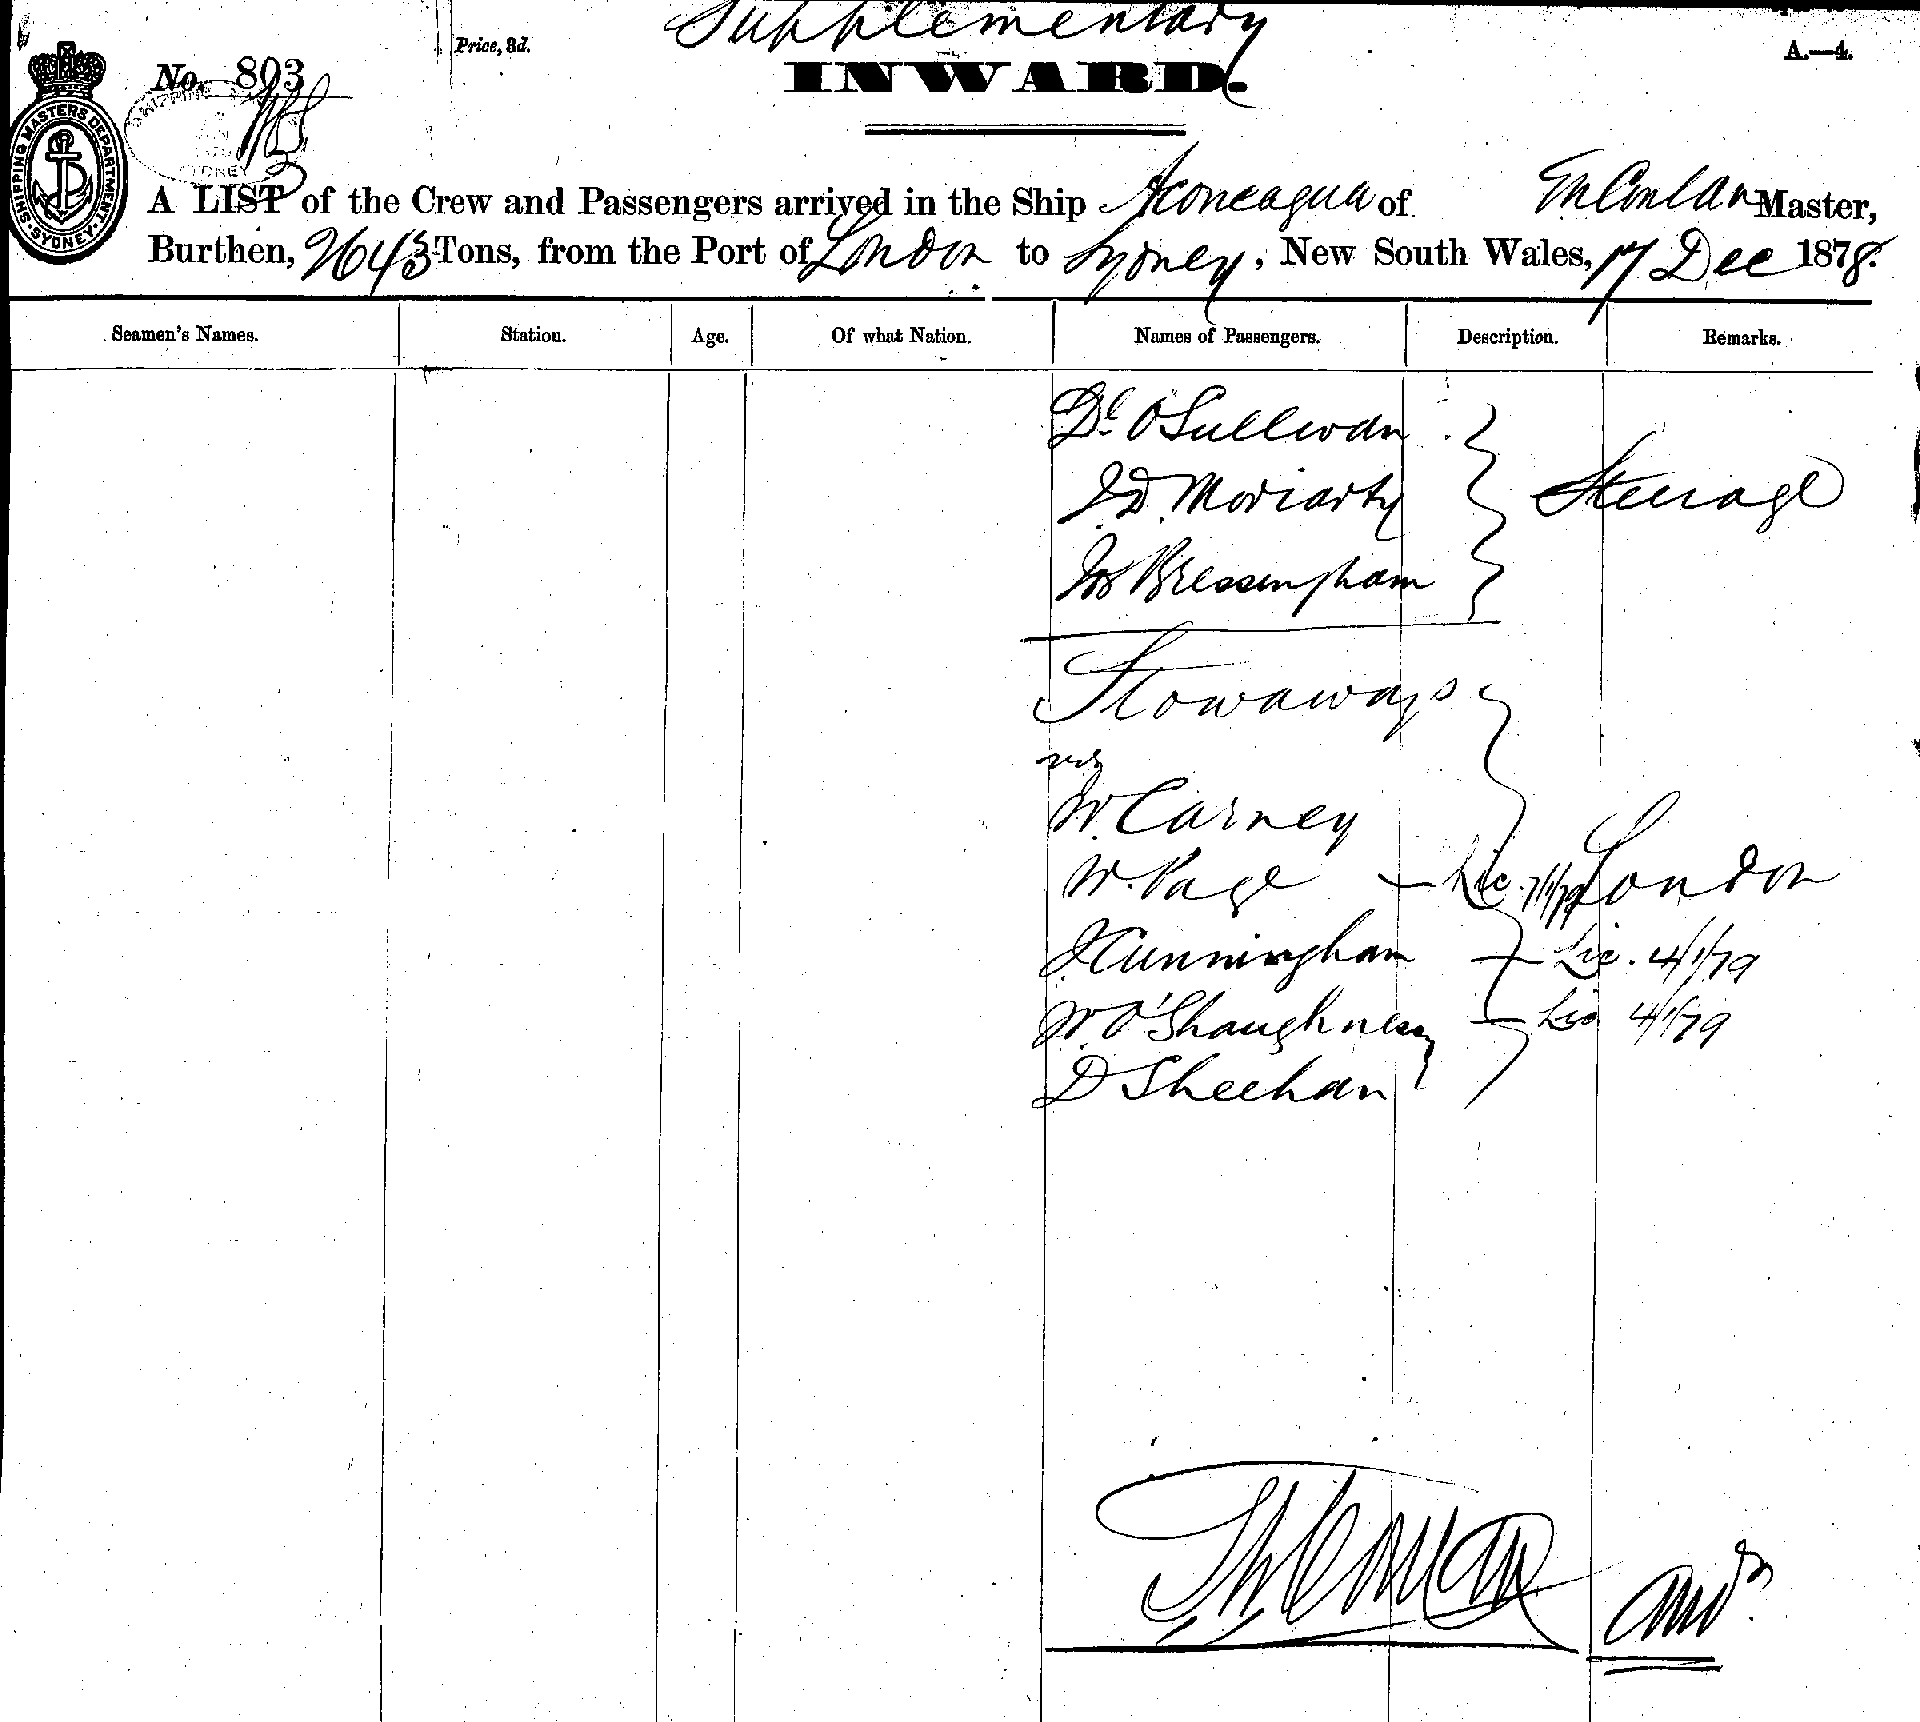 Supplementary
Price, 3d.
A.—4.
No. 893
INWARD.
SHIPPING MASTERS DEPARTMENT · SYDNEY ·
A LIST of the Crew and Passengers arrived in the Ship Aconcagua of Conlan Master,
Burthen, 2643 Tons, from the Port of London to Sydney, New South Wales, 17 Dec 1878.
Seamen's Names. Station. Age. Of what Nation. Names of Passengers. Description. Remarks.
O'Sullivan
J. D. Moriarty Steerage
Bressingham
Stowaways
viz
W. Carney
W. Page — Lic. 7/1/79 London
J Cunningham — Lic. 4/1/79
W. O'Shaughnessy — Lic 4/1/79
D Sheehan